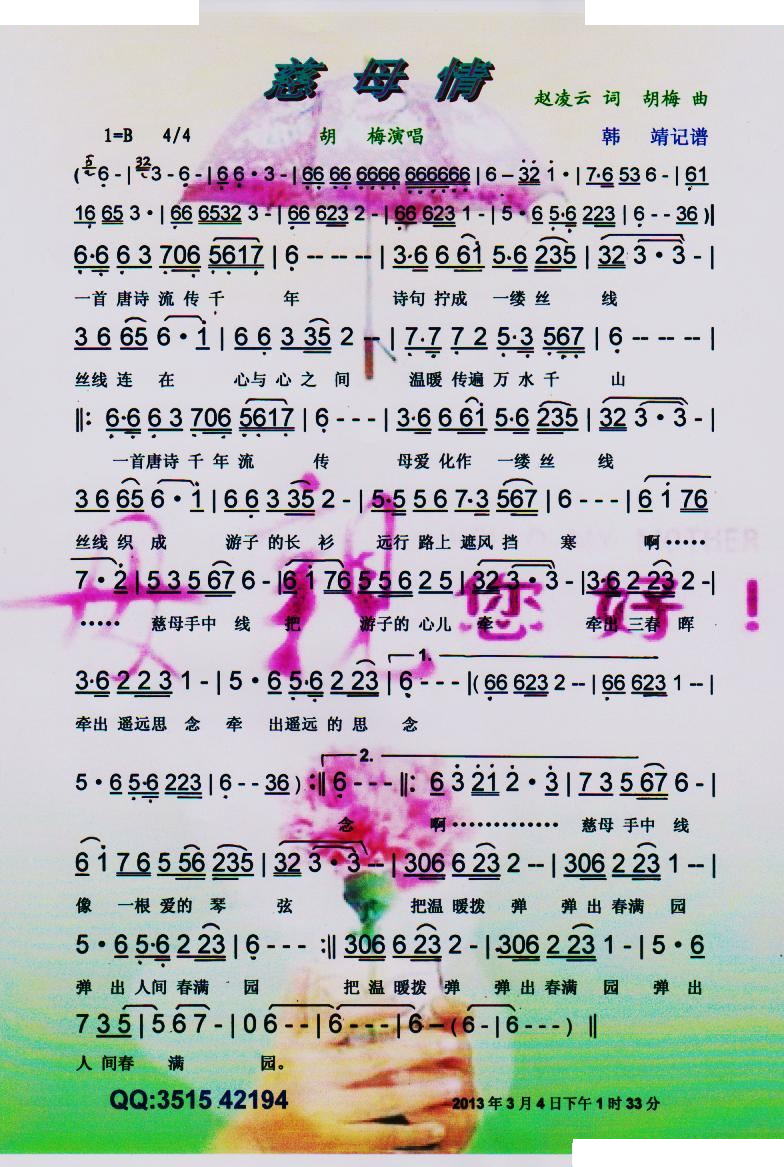 慈母情
赵凌云 词 胡梅 曲
1=B 4/4 胡 梅演唱 韩 靖记谱
(6 - | 3 - 6 - | 6 6 · 3 - | 66 66 6666 666666 | 6 - 32 1 · | 7·6 53 6 - | 61
16 65 3 · | 66 6532 3 - | 66 623 2 - | 66 623 1 - | 5 · 6 5·6 223 | 6 - - 36 )|
6·6 6 3 706 5617 | 6 - - - - | 3·6 6 61 5·6 235 | 32 3 · 3 - |
一首 唐诗 流 传 千 年 诗句 拧成 一缕 丝 线
3 6 65 6 · 1 | 6 6 3 35 2 - | 7·7 7 2 5·3 567 | 6 - - - - |
丝线 连 在 心与 心 之 间 温暖 传遍 万 水 千 山
||: 6·6 6 3 706 5617 | 6 - - - | 3·6 6 61 5·6 235 | 32 3 · 3 - |
一首唐诗 千 年 流 传 母爱 化作 一缕 丝 线
3 6 65 6 · 1 | 6 6 3 35 2 - | 5·5 5 6 7·3 567 | 6 - - - | 6 1 76
丝线 织 成 游子 的长 衫 远行 路上 遮风 挡 寒 啊······
7 · 2 | 5 3 5 67 6 - | 6 1 76 5 5 6 2 5 | 32 3 · 3 - | 3·6 2 23 2 - |
····· 慈母手中 线 把 游子的 心儿 牵 牵出 三春 晖
母親您好!
3·6 2 2 3 1 - | 5 · 6 5·6 2 23 | 1. 6 - - - |( 66 623 2 - - | 66 623 1 - - |
牵出 遥远思 念 牵 出遥远 的 思 念
5 · 6 5·6 223 | 6 - - 36 ) :|| 2. 6 - - - ||: 6 3 21 2 · 3 | 7 3 5 67 6 - |
念 啊············· 慈母 手中 线
6 1 7 6 5 56 235 | 32 3 · 3 - - | 306 6 23 2 - - | 306 2 23 1 - - |
像 一根 爱的 琴 弦 把温 暖拨 弹 弹 出 春满 园
5 · 6 5·6 2 23 | 6 - - - :|| 306 6 23 2 - | 306 2 23 1 - | 5 · 6
弹 出 人间 春满 园 把 温 暖拨 弹 弹 出 春满 园 弹 出
7 3 5 | 5 6 7 - | 0 6 - - | 6 - - - | 6 - ( 6 - | 6 - - - ) ||
人 间春 满 园。
QQ:3515 42194 2013 年 3 月 4 日下午 1 时 33 分